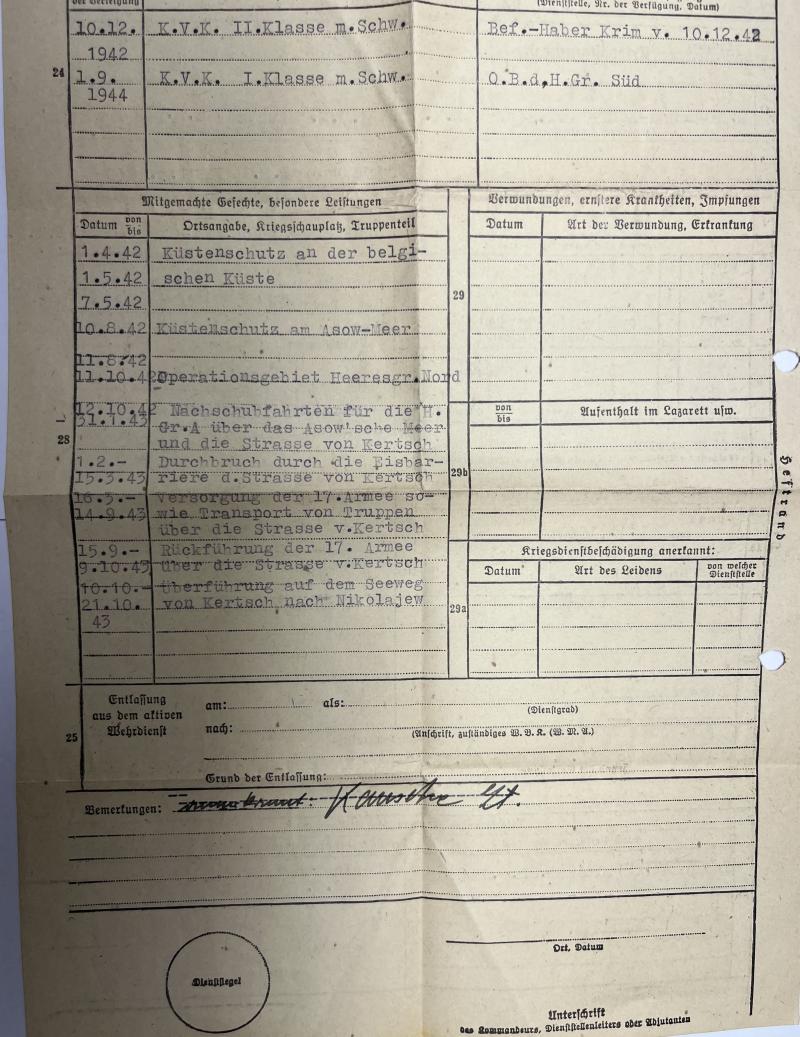 der Verleihung
(Dienststelle, Nr. der Verfügung, Datum)
10.12. K.V.K. II.Klasse m.Schw. Bef.-Haber Krim v. 10.12.42
1942
24
1.9. K.V.K. I.Klasse m.Schw. O.B.d,H.Gr. Süd
1944
Mitgemachte Gefechte, besondere Leistungen
Datum von bis
Ortsangabe, Kriegsschauplatz, Truppenteil
1.4.42 Küstenschutz an der belgi-
1.5.42 schen Küste
7.5.42
10.8.42 Küstenschutz am Asow-Meer
11.8.42
11.10.42 Operationsgebiet Heeresgr.Nord
12.10.42 Nachschubfahrten für die H.
31.1.43 Gr.A über das Asow'sche Meer
28
und die Strasse von Kertsch
1.2.- Durchbruch durch die Eisbar-
15.3.43 riere d.Strasse von Kertsch
16.3.- Versorgung der 17.Armee so-
14.9.43 wie Transport von Truppen
über die Strasse v.Kertsch
15.9.- Rückführung der 17. Armee
9.10.43 über die Strasse v.Kertsch
10.10.- Überführung auf dem Seeweg
21.10. von Kertsch nach Nikolajew
43
Verwundungen, ernstere Krankheiten, Impfungen
Datum
Art der Verwundung, Erkrankung
29
von bis
Aufenthalt im Lazarett usw.
29b
Kriegsdienstbeschädigung anerkannt:
Datum
Art des Leidens
von welcher
Dienststelle
29a
Heftrand
25
Entlassung
aus dem aktiven
Wehrdienst
am: als:
(Dienstgrad)
nach:
(Anschrift, zuständiges W. B. K. (W. M. A.)
Grund der Entlassung:
Bemerkungen:
Ort, Datum
Dienstsiegel
Unterschrift
des Kommandeurs, Dienststellenleiters oder Adjutanten